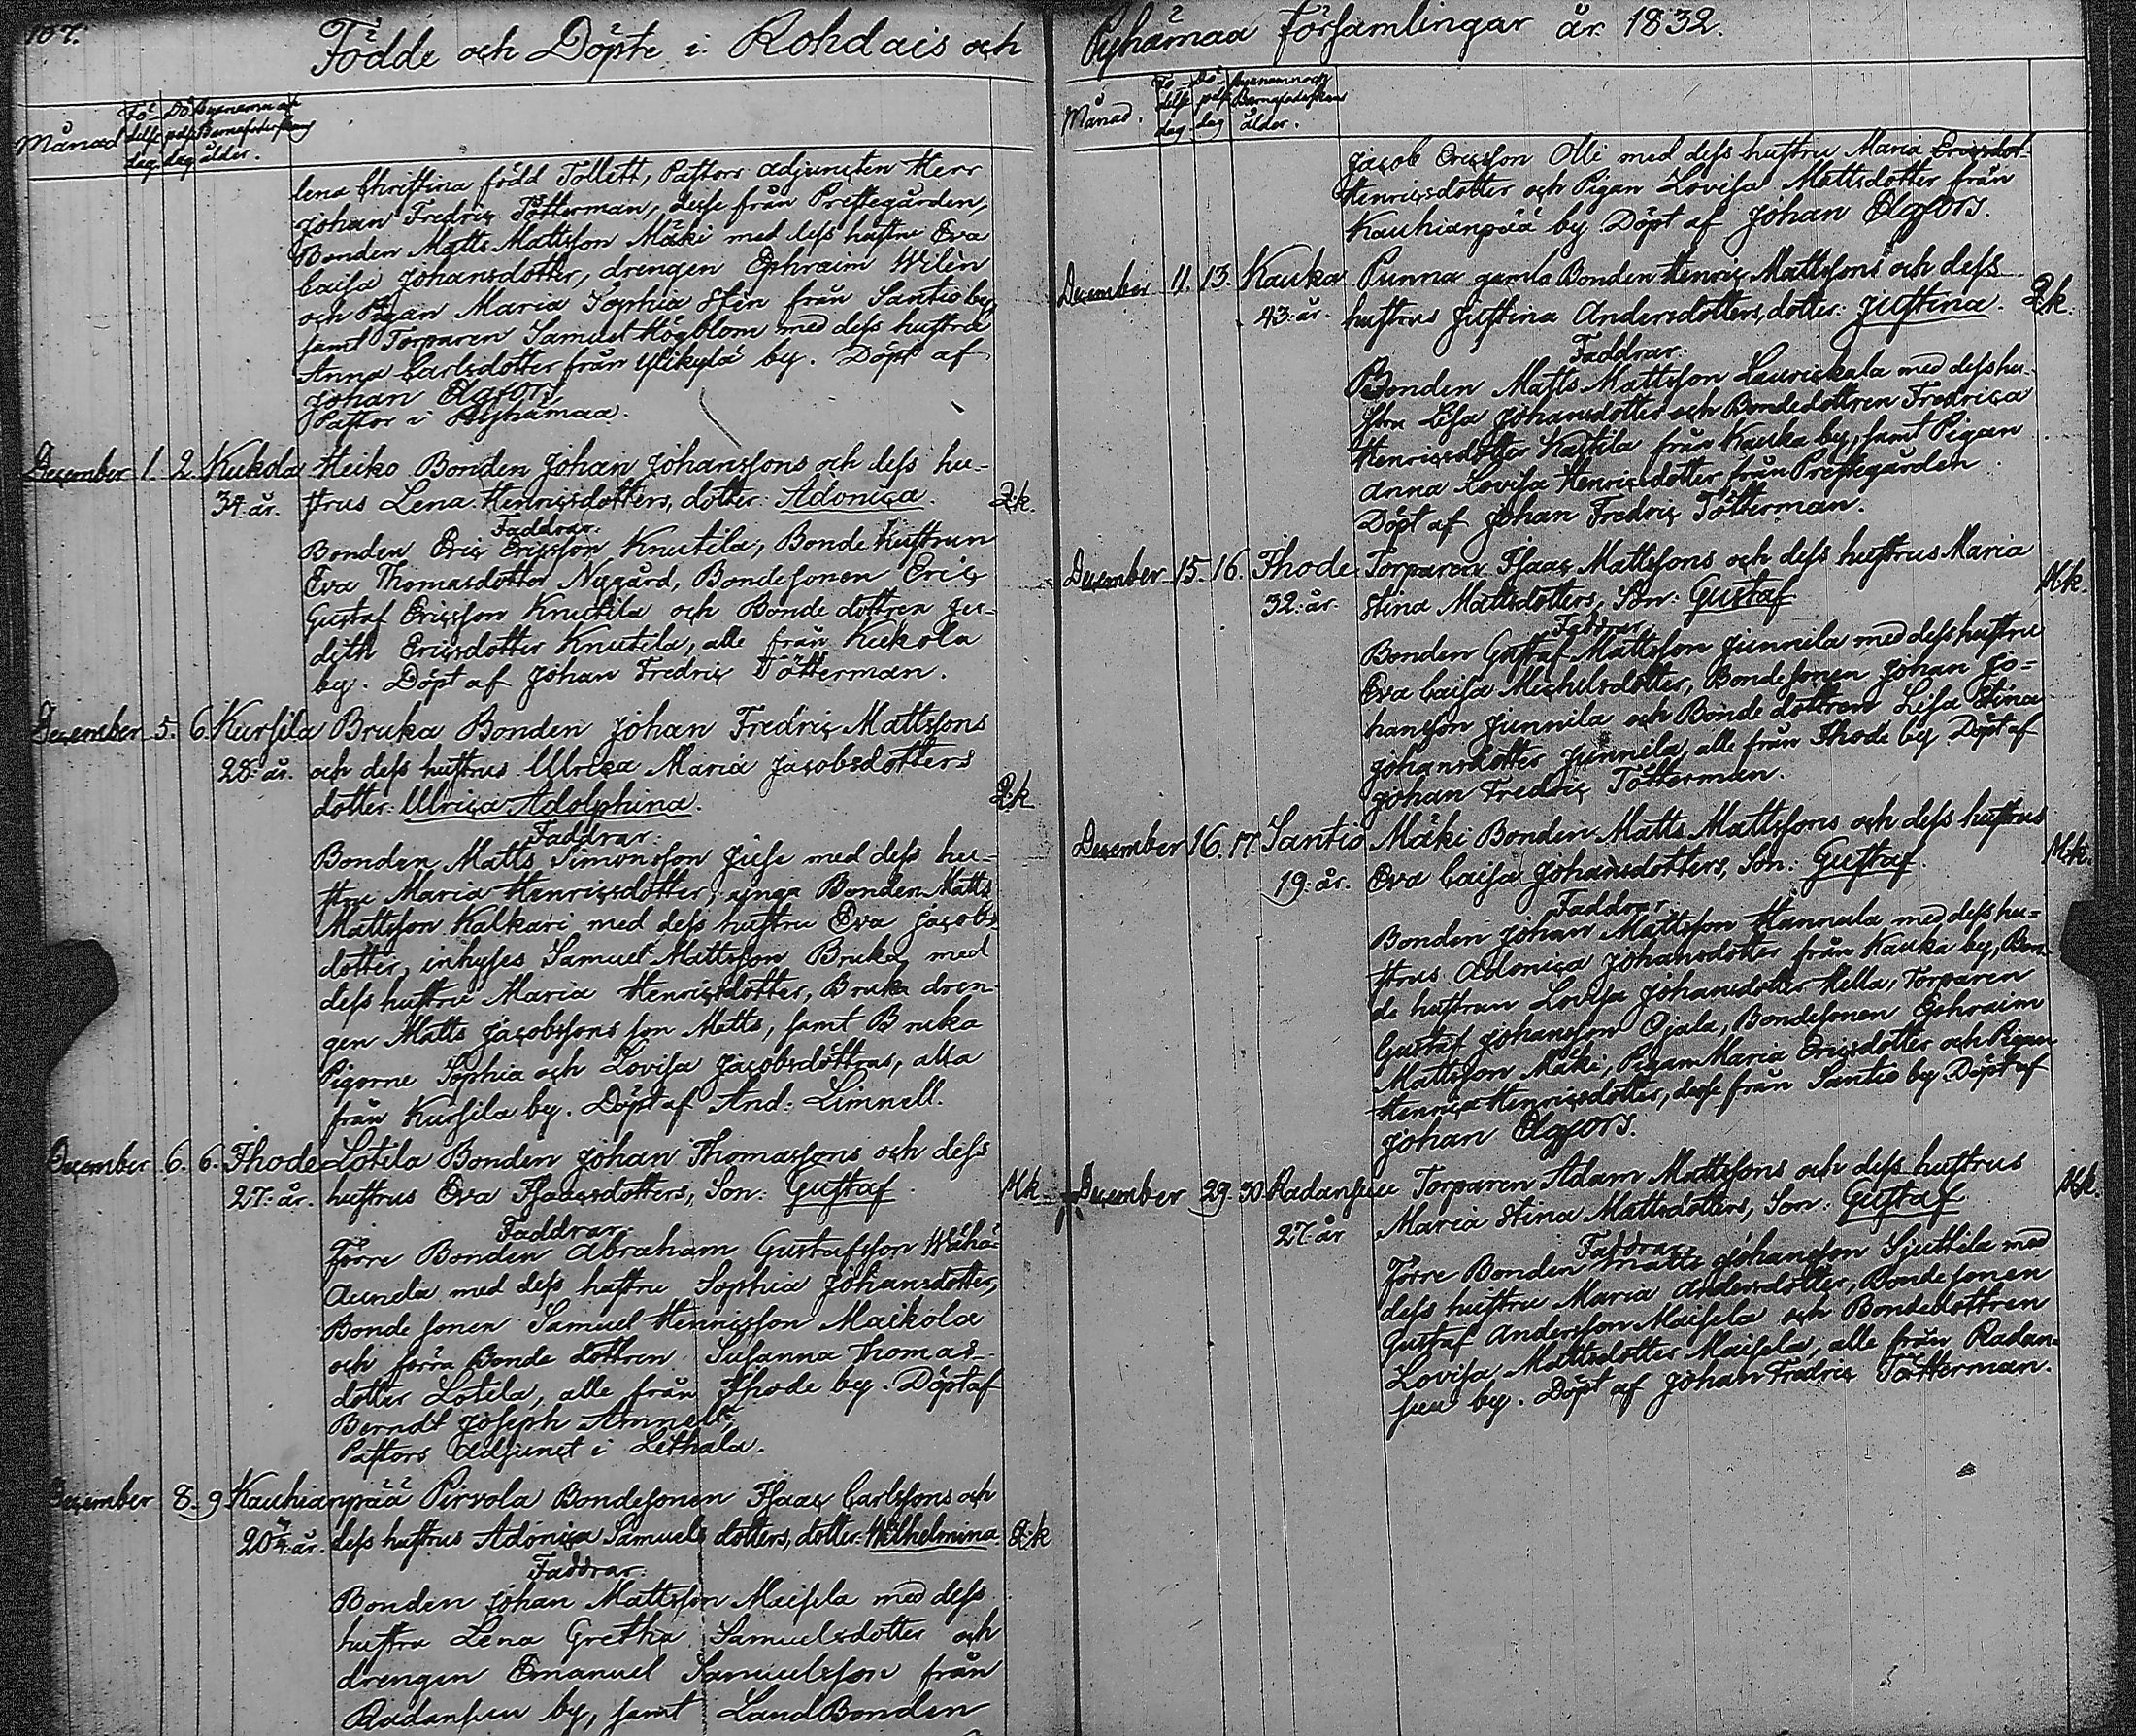 107.
Födde och Döpte i Rohdais och
Månad
Fö-
delse
dag
Dö
pdse
dag
Byenamn och
Barnafoderskans
ålder.
lena Christina född Tollett, Pastors adjuncten Herr
Johan Fredric Tötterman, desse från Prestegården,
Bonden Matts Mattsson Mäki med dess hustru Eva
Caisa Johansdotter, drengen Ephraim Wilèn
och Pigan Maria Sophia Sten från Santio by,
samt Torparen Samuel Högblom med dess hustru
Anna Carlsdotter från Ylikylä by. Döpt af
Johan Elgfors,
Pastor i Pyhämaa.
December 1. 2. Kukola Heiko Bonden Johan Johanssons och dess hu-
34. år. strus Lena Henricsdotters, dotter: Adonica. Q.k.
Faddrar:
Bonden Eric Ericsson Knutila, Bonde hustrun
Eva Thomasdotter Nygård, Bondesonen Eric
Gustaf Ericsson Knutila och Bonde dottren Ju-
dith Ericsdotter Knutila, alle från Kukola
by. Döpt af Johan Fredric Tötterman.
December 5. 6. Kursila Bruka Bonden Johan Fredric Mattssons
28. år. och dess hustrus Ulrica Maria Jacobsdotters
dotter: Ulrica Adolphina. Q.k.
Faddrar:
Bonden Matts Simonsson Juse med dess hu-
stru Maria Henricsdotter, unga Bonden Matts
Mattsson Kalkari med dess hustru Eva Jacobs-
dotter, inhyses Samuel Mattsson Bruka med
dess hustru Maria Henricsdotter, Bruka dren-
gen Matts Jacobssons son Matts, samt Bruka
Pigorne Sophia och Lovisa Jacobsdöttrar, alla
från Kursila by. Döpt af And: Limnell.
December 6. 6. Ihode Lotila Bonden Johan Thomassons och dess
27. år. hustrus Eva Isaacsdotters, Son: Gustaf. M.k.
Faddrar:
Förre Bonden Abraham Gustafsson Wähä-
Aunela med dess hustru Sophia Johansdotter,
Bonde sonen Samuel Henricsson Maikola
och förra Bonde dottren Susanna Thomas-
dotter Lotila, alle från Ihode by. Döpt af
Berndt Joseph Amnell,
Pastors Adjunct i Lethala.
December 8. 9. Kauhianpää Pirvola Bondesonen Isaac Carlssons och
20 år. dess hustrus Adonica Samuels dotters, dotter: Wilhelmina. Q.k
Faddrar:
Bonden Johan Mattsson Maisela med dess
hustru Lena Gretha Samuelsdotter och
drengen Emanuel Samuelsson från
Radansuu by, samt LandBonden
Pyhämaa Församlingar år 1832.
Månad.
Fö-
delse
dag
Dö-
pdse
dag
Byenamn och
Barnafoderskans
ålder.
Jacob Ericsson Olli med dess hustru Maria Ericsdot-
Henricsdotter och Pigan Lovisa Mattsdotter från
Kauhianpää by. Döpt af Johan Elgfors.
December 11. 13. Kauka Punna gamla Bonden Henric Mattssons och dess
43. år. hustrus Justina Andersdotters, dotter: Justina. Q.k.
Faddrar:
Bonden Matts Mattsson Lauriskala med dess hu-
stru Lisa Johansdotter och Bondedottren Fredrica
Henricsdotter Kattila från Kauka by, samt Pigan
Anna Lovisa Henricsdotter från Prestegården
Döpt af Johan Fredric Tötterman.
December 15. 16. Ihode Torparen Isaac Mattssons och dess hustrus Maria
32. år. Stina Mattsdotters, Son: Gustaf M.k.
Faddrar:
Bonden Gustaf Mattsson Junnila med dess hustru
Eva Caisa Michelsdotter, Bondesonen Johan Jo-
hansson Junnila och Bonde dottren Lisa Stina
Johansdotter Junnila, alle från Ihode by. Döpt af
Johan Fredric Tötterman.
December 16. 17. Santio Mäki Bonden Matts Mattssons och dess hustrus
19. år. Eva Caisa Johansdotters, Son: Gustaf. M.k.
Faddrar:
Bonden Johan Mattsson Hannula med dess hu-
strus Adonica Johansdotter från Kauka by, Bon-
de hustrun Lovisa Johansdotter Mella, Torparen
Gustaf Johansson Ojala, Bondesonen Ephraim
Mattsson Mäki, Pigan Maria Ericsdotter och Pigan
Henrica Henricsdotter, desse från Santio by. Döpt af
Johan Elgfors.
December 29. 30. Radansuu Torparen Adam Mattssons och dess hustrus
27. år Maria Stina Mattsdotters, Son: Gustaf. M.k.
Faddrar:
Förre Bonden Matts Johansson Sjuttila med
dess hustru Maria Andersdotter, Bondesonen
Gustaf Andersson Maisela och Bondedottren
Lovisa Mattsdotter Maisela, alle från Radan-
suu by. Döpt af Johan Fredric Tötterman.